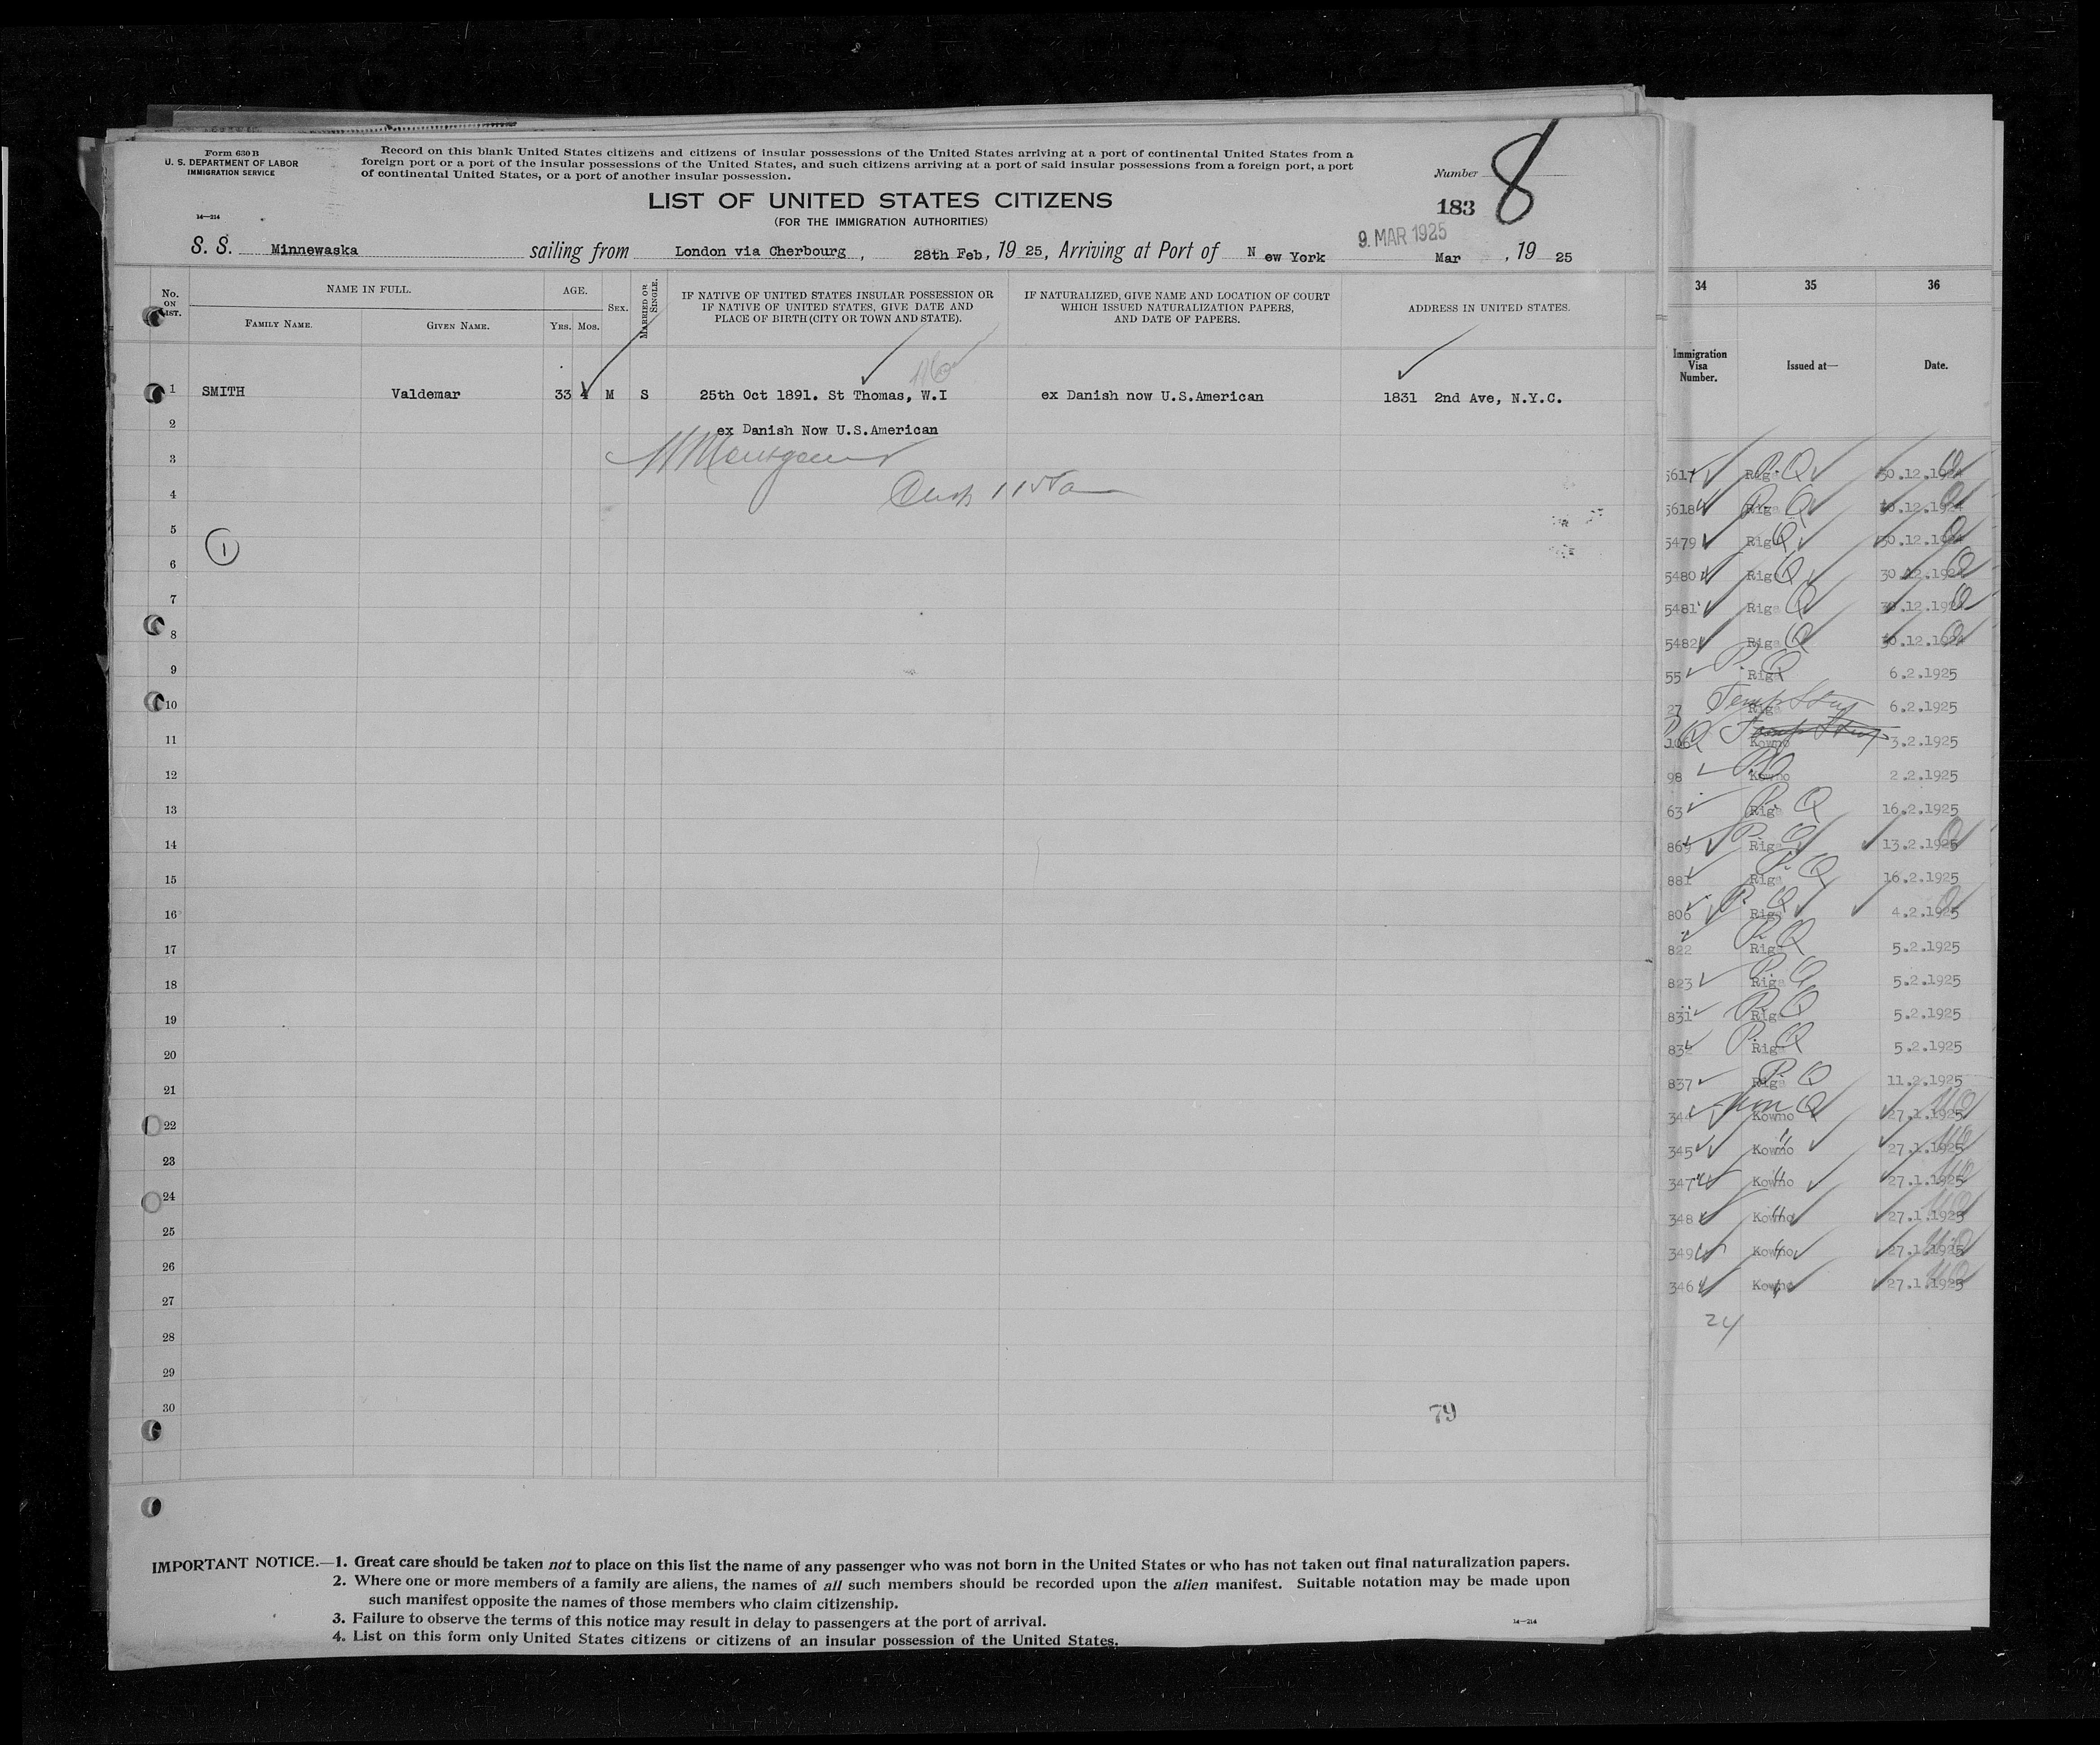 Form 630 B
U. S. DEPARTMENT OF LABOR
IMMIGRATION SERVICE
14—214
Record on this blank United States citizens and citizens of insular possessions of the United States arriving at a port of continental United States from a
foreign port or a port of the insular possessions of the United States, and such citizens arriving at a port of said insular possessions from a foreign port, a port
of continental United States, or a port of another insular possession.
LIST OF UNITED STATES CITIZENS
(FOR THE IMMIGRATION AUTHORITIES)
Number 8
183
9. MAR 1925
S. S. Minnewaska sailing from London via Cherbourg , 28th Feb, 19 25, Arriving at Port of N ew York Mar , 19 25
No. ON LIST.
NAME IN FULL.
FAMILY NAME.
GIVEN NAME.
AGE.
Yrs. Mos.
SEX.
MARRIED OR SINGLE.
IF NATIVE OF UNITED STATES INSULAR POSSESSION OR
IF NATIVE OF UNITED STATES, GIVE DATE AND
PLACE OF BIRTH (CITY OR TOWN AND STATE).
IF NATURALIZED, GIVE NAME AND LOCATION OF COURT
WHICH ISSUED NATURALIZATION PAPERS,
AND DATE OF PAPERS.
ADDRESS IN UNITED STATES.
1 SMITH Valdemar 33 4 M S 25th Oct 1891. St Thomas, W.I ex Danish now U.S.American 1831 2nd Ave, N.Y.C.
2 ex Danish Now U.S.American
3
4
5
1
6
7
8
9
10
11
12
13
14
15
16
17
18
19
20
21
22
23
24
25
26
27
28
29
30
79
IMPORTANT NOTICE.—1. Great care should be taken not to place on this list the name of any passenger who was not born in the United States or who has not taken out final naturalization papers.
2. Where one or more members of a family are aliens, the names of all such members should be recorded upon the alien manifest. Suitable notation may be made upon
such manifest opposite the names of those members who claim citizenship.
3. Failure to observe the terms of this notice may result in delay to passengers at the port of arrival.
4. List on this form only United States citizens or citizens of an insular possession of the United States.
14—214
34 35 36
Immigration
Visa
Number.
Issued at—
Date.
5617 Riga 30.12.1924
5618 Riga 30.12.1924
5479 Riga 30.12.1924
5480 Riga 30.12.1924
5481 Riga 30.12.1924
5482 Riga 30.12.1924
55 Riga 6.2.1925
27 Riga 6.2.1925
106 Kowno 3.2.1925
98 Kowno 2.2.1925
63 Riga 16.2.1925
869 Riga 13.2.1925
881 Riga 16.2.1925
806 Riga 4.2.1925
822 Riga 5.2.1925
823 Riga 5.2.1925
831 Riga 5.2.1925
Riga 5.2.1925
837 Riga 11.2.1925
344 Kowno 27.1.1925
345 Kowno 27.1.1925
347 Kowno 27.1.1925
348 Kowno 27.1.1925
349 Kowno 27.1.1925
346 Kowno 27.1.1925
24